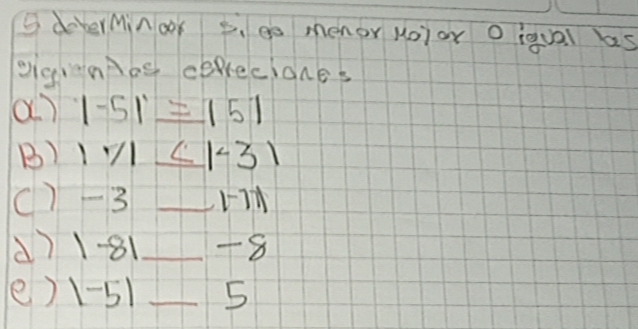 5 determinar si es menor mayor o igual las
siguientes
a) |-5| = |5|
B) | 7 | < |-3|
c) -3 __ |-7|
d) |-8| __ -8
e) |-5| __ 5